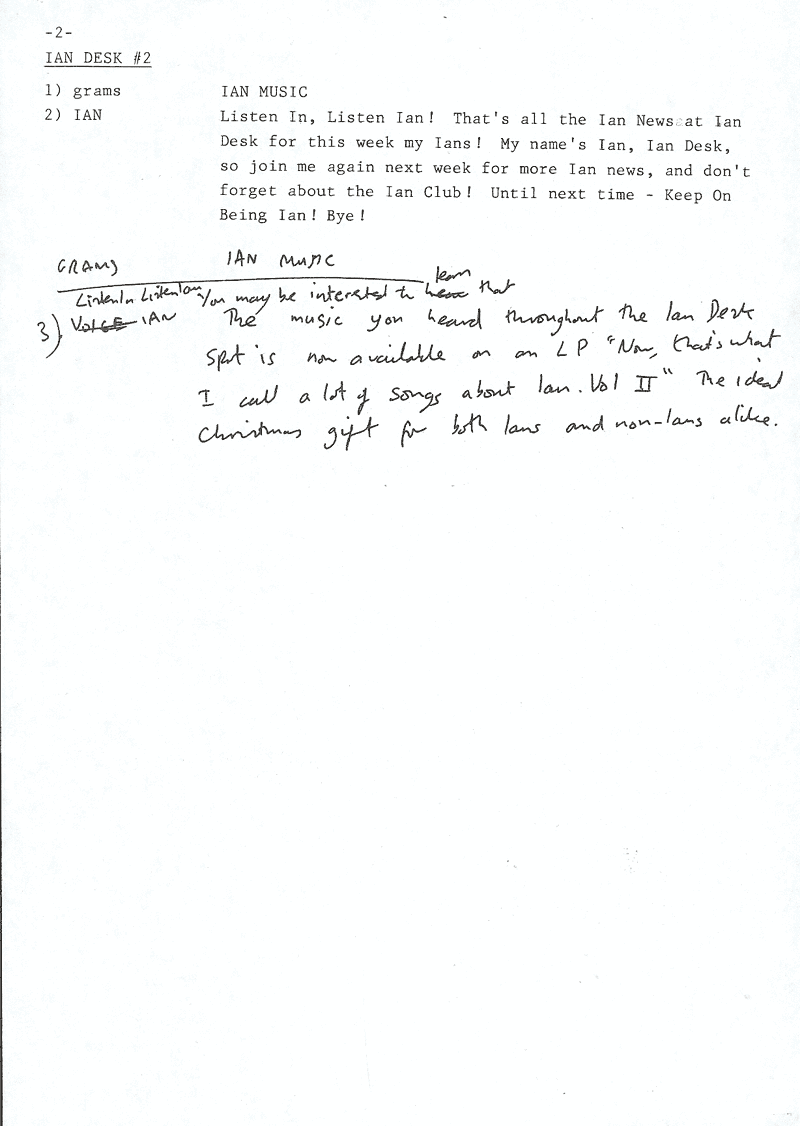 -2-
IAN DESK #2
1) grams IAN MUSIC
2) IAN Listen In, Listen Ian! That's all the Ian News at Ian
Desk for this week my Ians! My name's Ian, Ian Desk,
so join me again next week for more Ian news, and don't
forget about the Ian Club! Until next time - Keep On
Being Ian! Bye!
GRAMS IAN MUSIC
learn
Listen In Listen Ian You may be interested to hear that
3) VOICE IAN The music you heard throughout the Ian Desk
spot is now available on an LP "Now, that's what
I call a lot of songs about Ian. Vol II" The ideal
Christmas gift for both Ians and non-Ians alike.